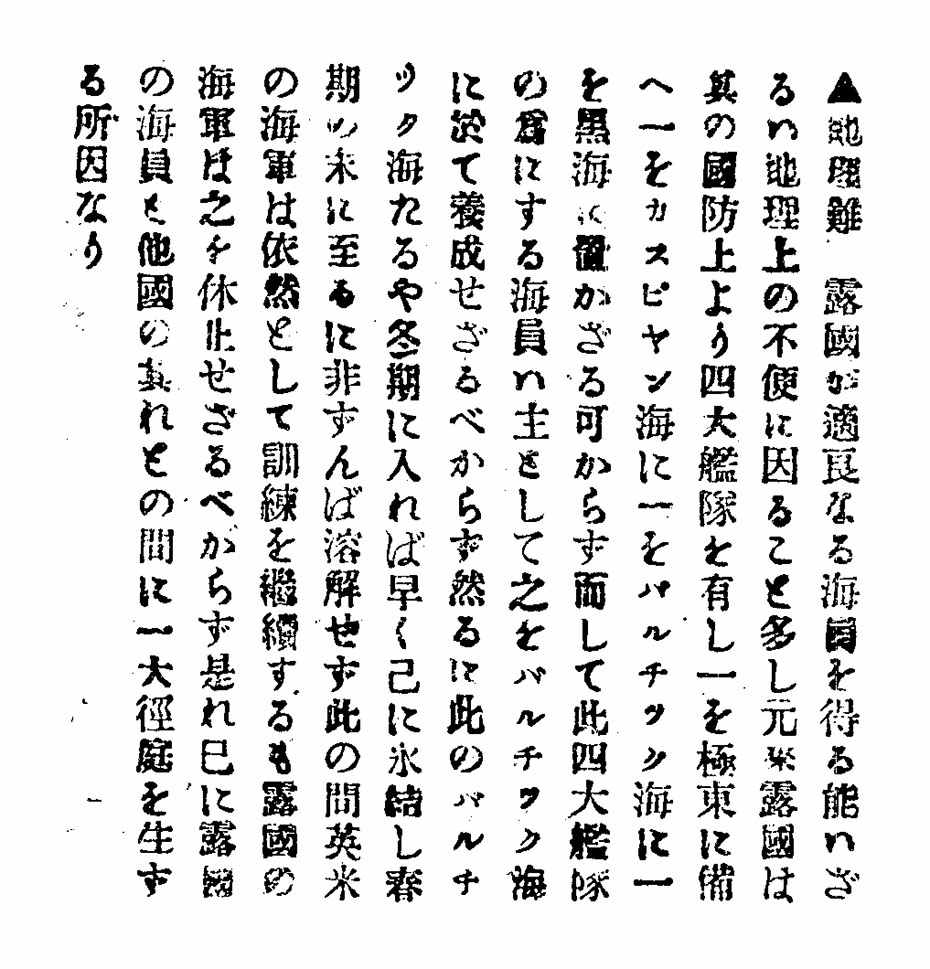 ▲地理難　露國が適良なる海員を得る能ハざ
るハ地理上の不便に因ること多し元來露國は
其の國防上より四大艦隊を有し一を極東に備
へ一をカスピヤン海に一をバルチック海に一
を黒海に置かざる可からず而して此四大艦隊
の爲にする海員ハ主として之をバルチック海
に於て養成せざるべからず然るに此のバルチ
ツク海たるや冬期に入れば早く己に氷結し春
期の末に至るに非ずんば溶解せず此の間英米
の海軍は依然として訓練を繼續するも露國の
海軍は之を休止せざるべがらず是れ巳に露國
の海員と他國の其れとの間に一大徑庭を生ず
る所因なり